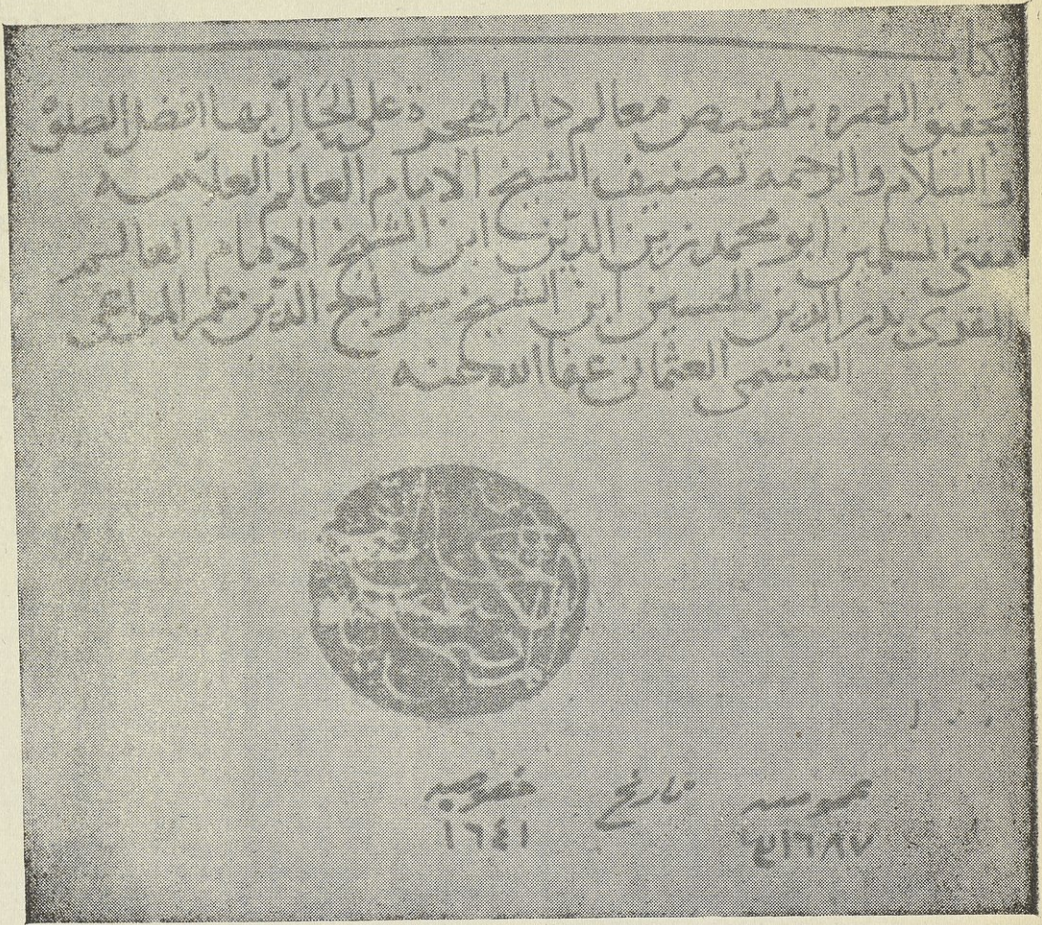 كتاب
تحقيق النصره بتلخيص معالم دار الهجرة على الحال بها افضل الصلوة
والسلام والرحمه تصنيف الشيخ الامام العالم العلامه
مفتى المسلمين ابو محمد زين الدين ابن الشيخ الامام العالم
المقدى بدر الدين الحسين ابن الشيخ سراج الدين عمر المراغى
العبشمى العثمانى عفا الله عنه
عموميه تاريخ خصوصيه
١٦٨٧ ١٦٤١